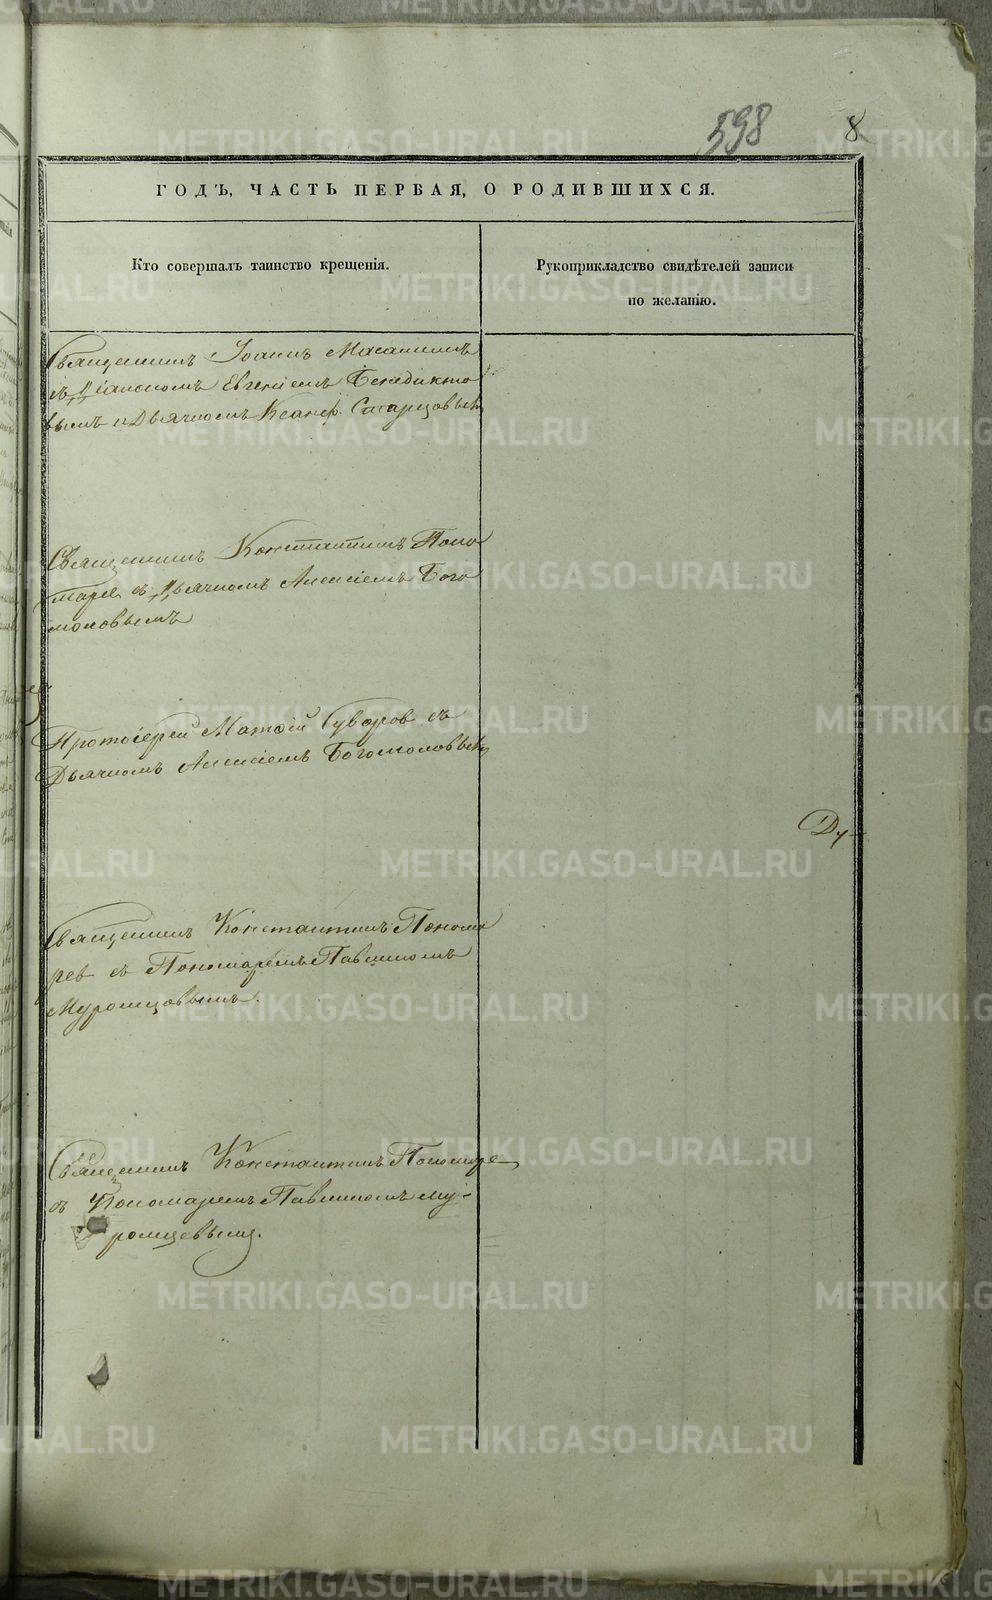 598
8
ГОДЪ, ЧАСТЬ ПЕРВАЯ, О РОДИВШИХСЯ.
Кто совершалъ таинство крещенія.
Рукоприкладство свидѣтелей записи
по желанію.
Священникъ Іоаннъ
съ Діакономъ Евгеніемъ Бенедикто
вымъ и Дьячкомъ Ксанф. Старцовым
Священникъ Константинъ Поно
марев съ Дьячкомъ Алексіемъ Бого
моловымъ
Протоіерей Матѳій Суворов съ
Дьячкомъ Алексіемъ Богомоловым
Священникъ Константинъ Понома
рев съ Пономаремъ Павлиномъ
Муромцовымъ.
Священникъ Константинъ Пономаре
съ Пономаремъ Павлиномъ Му-
ромцевымъ.
Ду-
METRIKI.GASO-URAL.RU